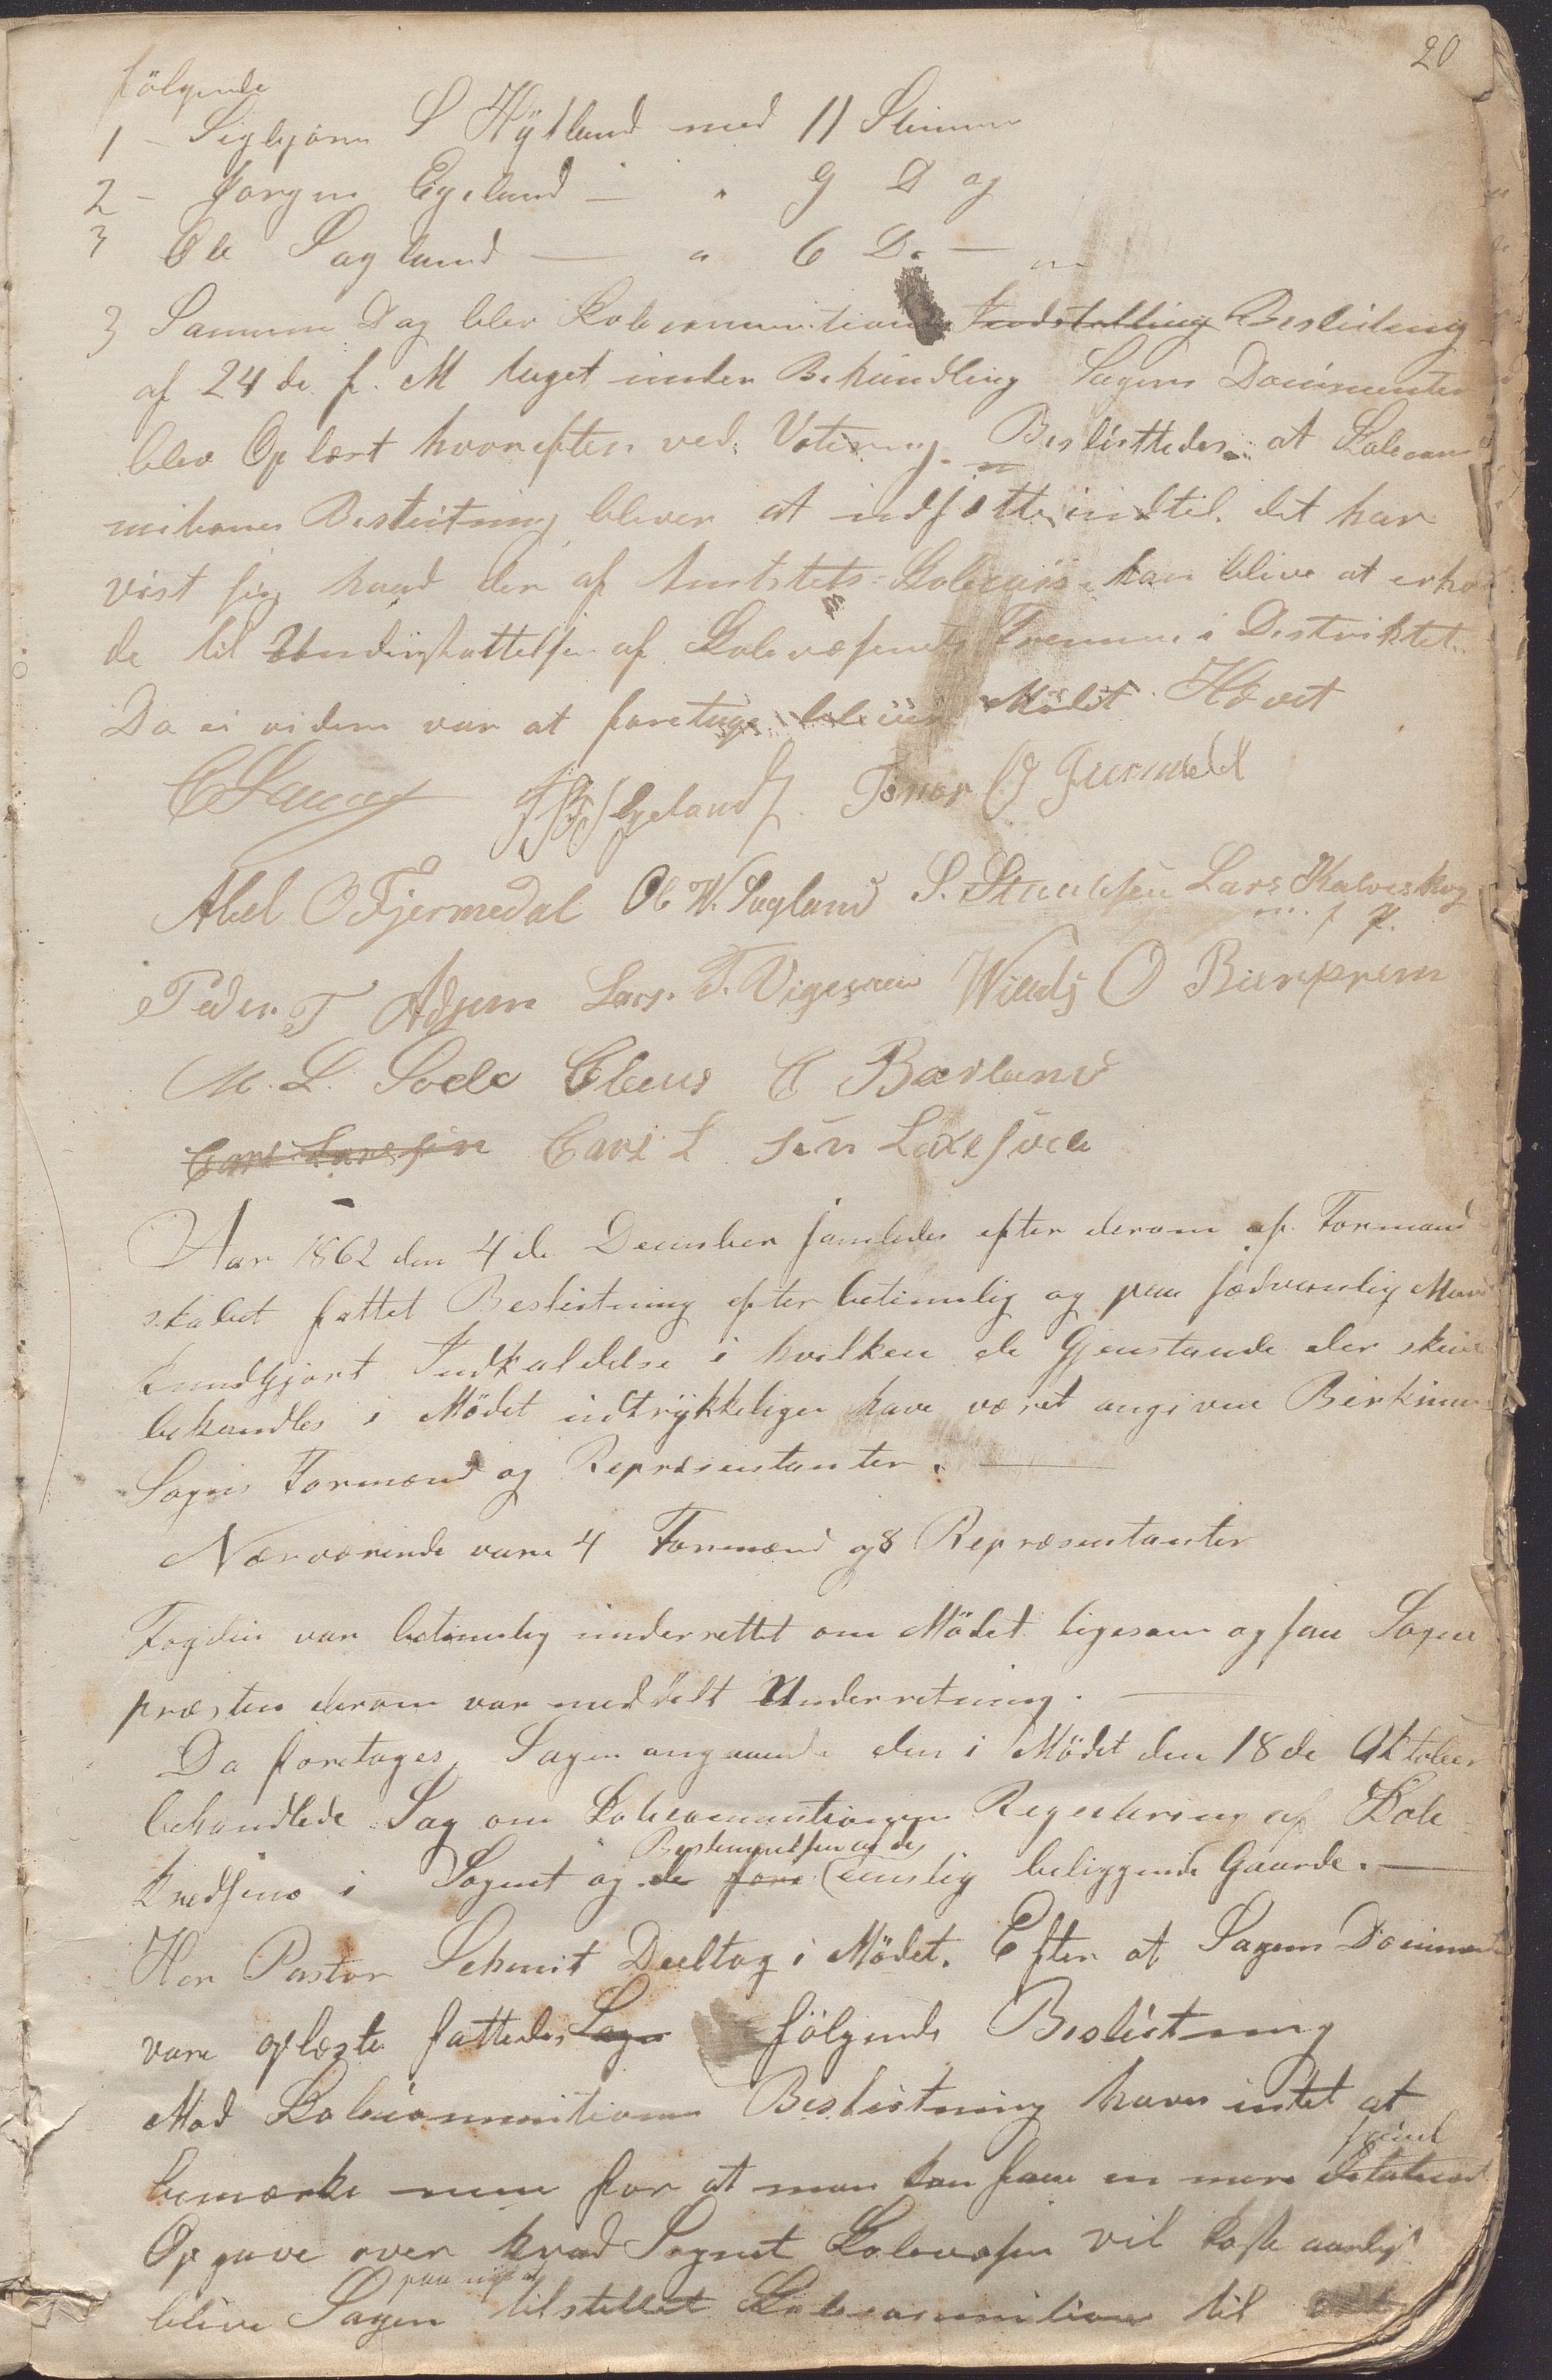 20
følgende
1 – Sigbjørn S Hÿtland med 11 Stemmer
2 – Jørgen Egeland – " 9 D og
3 Ole Sagland — " 6 Do —
3 Samme Dag blev Skolecommitionens Indstelling Beslutning
af 24de f. M taget under Behandling Sagens Documenter
blev Oplæst hvorefter ved Votering Beslüttedes at Skolecom
mitionens Beslutning bliver at udsætte indtil det har
vist sig hvad der af Amtets Skolecasse kan blive at erhol
de til Understøttelse af Skolevæsenets Fremme i Distriktet.
Da ei videre var at foretage blev Mödet Hævet
Tønnes O Fjermedal
Abel O Fjermedal Ole W. Sagland S. Lars Kalveskog
m. f. P.
Peder T Adsem Lars T. Vigesaae Villads O Birkrem
M. L. Svele Claus C Bærland
Carl Larsen Carl L sen Laxesvele
Aar 1862 den 4de December samledes efter derom af Formand
skabet fattet Beslutning efter betimelig og paa sædvanlig Maade
kundgjort Indkaldelse i hvilken de Gjenstande der skulde
behandles i Mödet udtrÿkkeligen have været angivne Birkrem
Sogns Formænd og Repræsentanter. —
Nærværende vare 4 Formænd og 8 Repræsentanter
Fogden var betimelig underrettet om Mödet ligesom ogsaa Sogne
præsten derom var meddelt Underretning. —
Da foretages Sagen angaaende den i Mödet den 18de Oktober
behandlede Sag om Skolecommitionens Regulering af Skole
Bestemmelsen af de
kredsene i Sognet og de eenslig beliggende Gaarde. —
Her Pastor Schmit Deeltog i Mödet. Efter at Sagens Documenter
vare oplæste fattedes Sagen følgende Beslutning
Mod Skolecommitionens Beslutning haves intet at
bemærke men for at man kan faae en mere detaileret
Opgave over hvad Sognet Skolevæsen vil koste aarligt
paa nÿt
blive Sagen tilstillet Skolecommitionen til